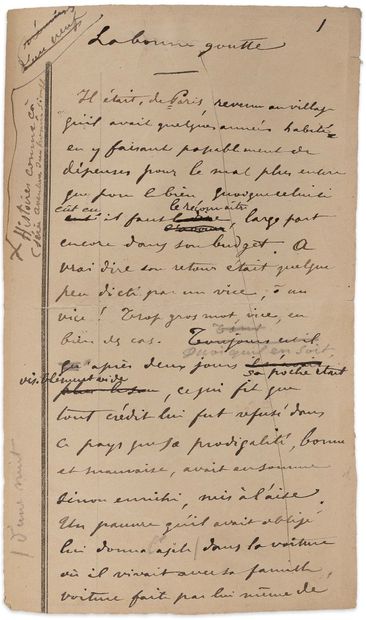 1
La bonne goutte
Histoires comme ça
Il était, de Paris, revenu au villag
qu'il avait quelques années habité
en y faisant passablement de
dépenses pour le mal plus encore
que pour le bien quoique celui-ci
eût eu, il faut le reconnaître, large part
encore dans son budget. A
vrai dire son retour était quelque
peu dicté par un vice; ô un
vice! Trop gros mot, vice, en
bien des cas. Toujours est-il
Quoi qu'il en soit,
qu' après deux jours sa poche était
visiblement vide
, ce qui fit que
tout crédit lui fut refusé dans
ce pays que sa prodigalité, bonne
et mauvaise, avait en somme
sinon enrichi, mis à l'aise.
Un pauvre qu'il avait obligé
lui donna asile dans la voiture
où il vivait avec sa famille,
voiture faite par lui même de
d'une nuit